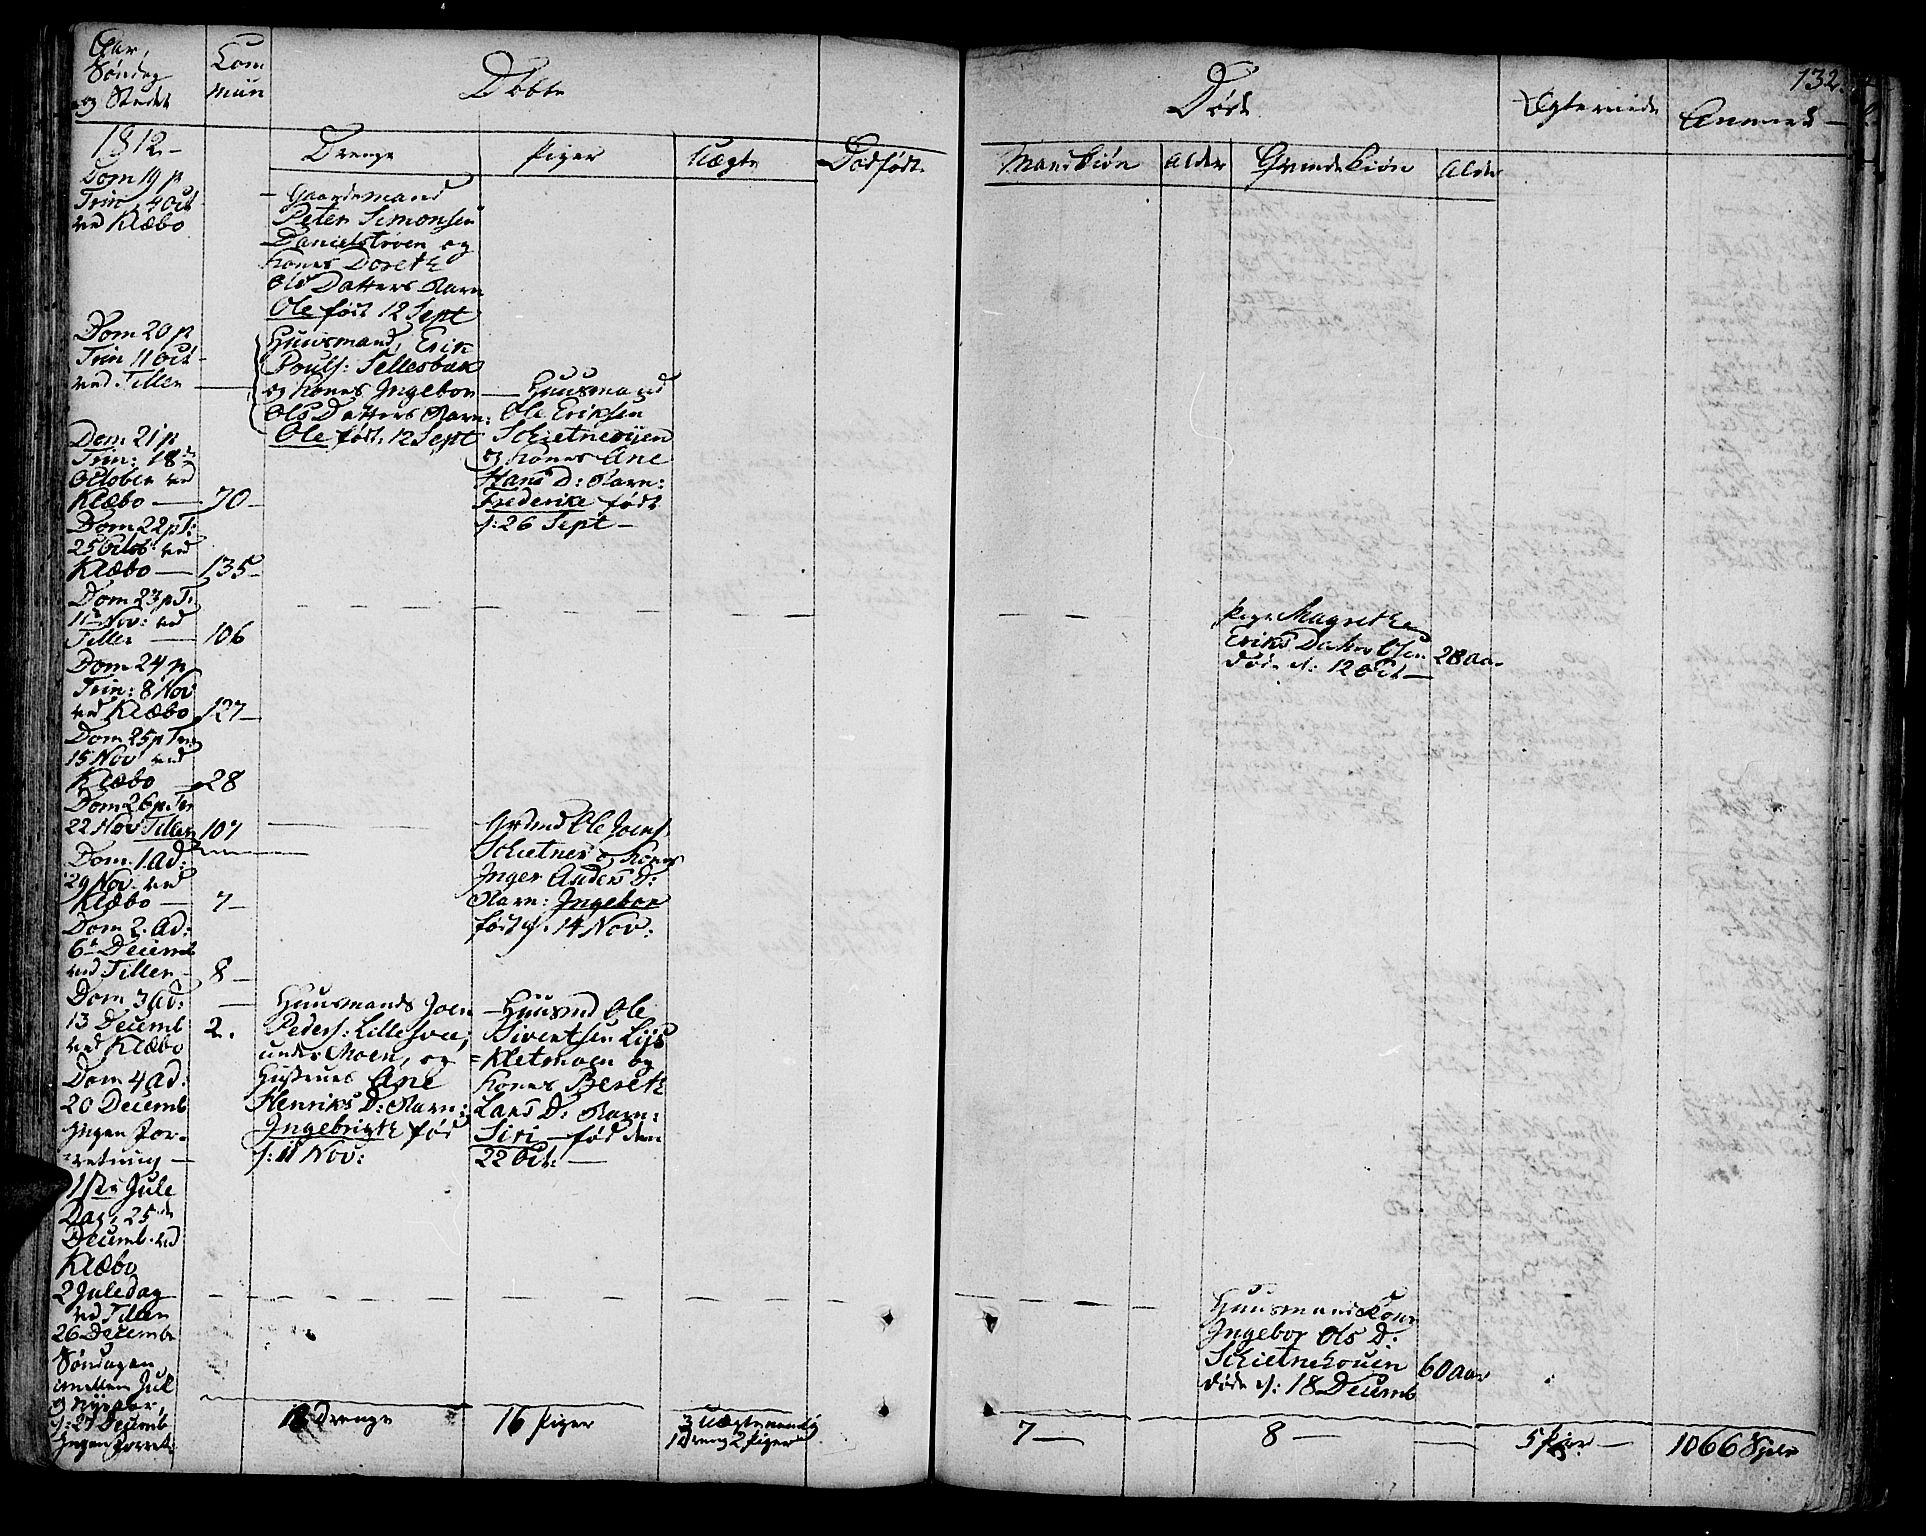 Aar,
Søndag
og Stedet
Com
mun
Døbte
Døde
Ægteviede
132.
Anmerk
1812.
Drenge
Piger
Uægte
Dødfødte
Mandkiøn
Alder
Qvindekiøn
Alder
Dom 19 p
Trin, 4 Oct
ved Klæbo
Gaardmand
Peter Simonsen
Danielstrøen og
Kones Doreth
Ols Datters Barn
Ole født 12 Sept
Dom 20 p
Trin 11 Oct
ved Tiller
Huusmand, Erik
Pouls: Sellesbak
og Kones Ingebor
Ols Datters Barn:
Ole født, 12 Sept
Huusmand
Ole Eriksen
Schietnevijen
og Kones Ane
Hans D: Barn:
Frederike født
d: 26 Sept
Dom 21 p
Trin: 18de
October ved
Klæbo 70
Dom 22 p T:
25 Octob: ved
Klæbo 135
Dom 23 p T:
1te Nov: ved
Tiller 106
Pige Magrethe
Eriks Datter
døde d: 12 Oct
28 Aar
Dom 24 p
Trin: 8 Nov
ved Klæbo 127
Dom 25 p Trin
15 Nov ved
Klæbo 28
Dom 26 p: Tr
22 Nov Tiller 107
Grdmd Ole Joens
Schietnes og Kones
Inger Anders D:
Barn: Ingebor
født d. 14 Nov:
Dom. 1. Ad:
29 Nov. ved
Klæbo 7
Dom 2. Ad:
6te Decemb
ved Tiller 8
Dom 3 Ad:
13 Decemb
ved Klæbo 2.
Huusmands Joen
Peders: Lillesvee,
under Moen, og
Hustrues Ane
Henriks D: Barn:
Ingebrigth fød
d: 11 Nov:
Huusmd Ole
Sivertsen Lijs
=Kletmoen og
Kones Bereth
Lars D: Barn:
Siri fød den
22 Oct:
Dom 4 Ad:
20 Decemb
Ingen For-
retning
1ste Jule
Dag, 25de
Decemb. ved
Klæbo
2 Juledag
ved Tiller
26 Decemb
Huusmands Kone
Ingebor Ols D:
Schietnehouen
døde d: 18 Decemb
60 Aar
Søndagen
imellem Jul
og Nytaar,
d: 27 Decemb
Ingen Forret:
18 Drenge
16 Piger
3 Uægte nemlig
1 Dreng 2 Piger
7
8
5 Par
1066 Siele